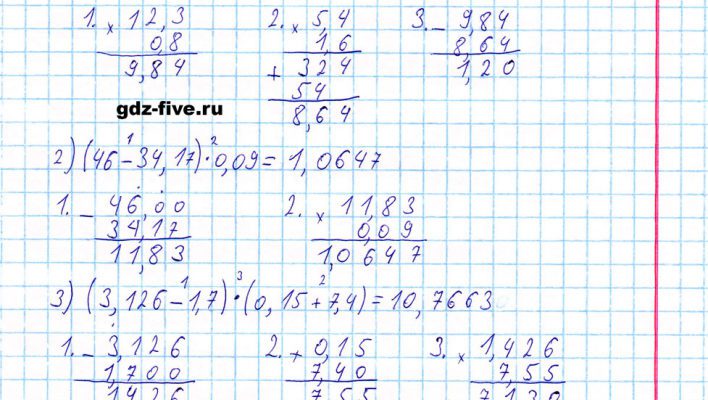 1. × 12,3   2. × 5,4   3. − 9,84
0,8   1,6   8,64
9,84   + 324   1,20
54
8,64
gdz-five.ru
2) (46 − 34,17) · 0,09 = 1,0647
1. − 46,00   2. × 11,83
34,17   0,09
11,83   1,0647
3) (3,126 − 1,7) · (0,15 + 7,4) = 10,7663
1. − 3,126   2. + 0,15   3. × 1,426
1,700   7,40   7,55
1,426   7,55   7130